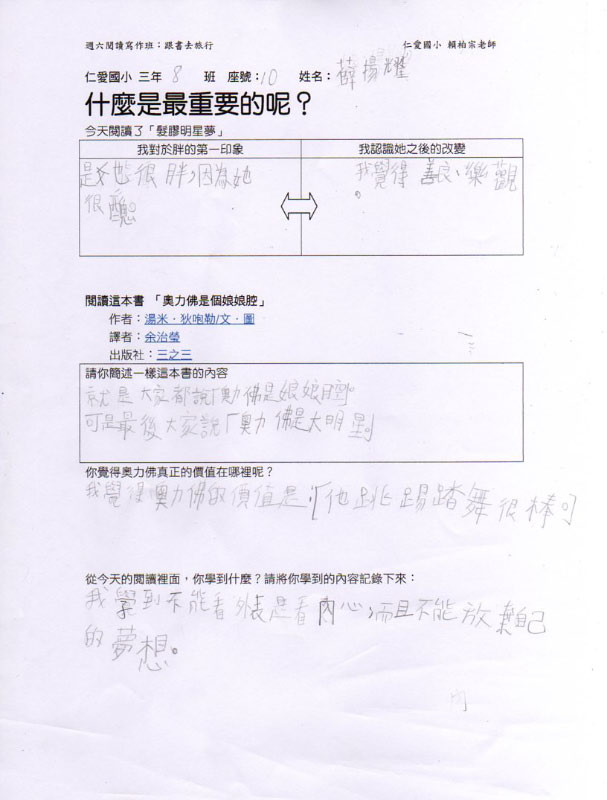 週六閱讀寫作班：跟書去旅行 仁愛國小 賴柏宗老師
仁愛國小 三年 8 班 座號：10 姓名：薛揚耀
什麼是最重要的呢？
今天閱讀了「髮膠明星夢」
我對於胖的第一印象 我認識她之後的改變
是她很胖，因為她 我覺得善良、樂觀
很醜。 。
閱讀這本書 「奧力佛是個娘娘腔」
作者：湯米．狄咆勒/文．圖
譯者：余治瑩
出版社：三之三
請你簡述一樣這本書的內容
就是大家都說「奧力佛是娘娘腔」。
可是最後大家說「奧力佛是大明星」
你覺得奧力佛真正的價值在哪裡呢？
我覺得奧力佛的價值是：「他跳踢踏舞很棒」
從今天的閱讀裡面，你學到什麼？請將你學到的內容記錄下來：
我學到不能看外表是看內心，而且不能放棄自己
的夢想。